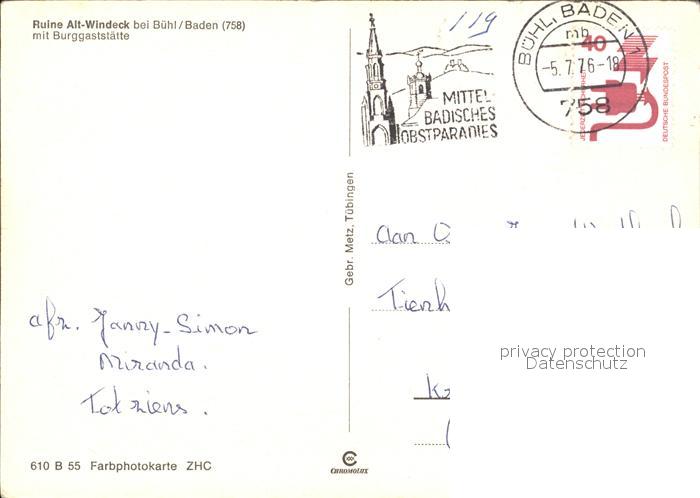 Ruine Alt-Windeck bei Bühl/Baden (758)
mit Burggaststätte
119
MITTEL-
BADISCHES
OBSTPARADIES
BÜHL, BADEN 1
mb
-5.7.76-18
758
40
JEDERZEIT SICHERHEIT
DEUTSCHE BUNDESPOST
Gebr. Metz, Tübingen
Aan
Tienh
privacy protection
Datenschutz
afz. Janny-Simon
Miranda.
Tot ziens.
610 B 55 Farbphotokarte ZHC
CHROMOLUX